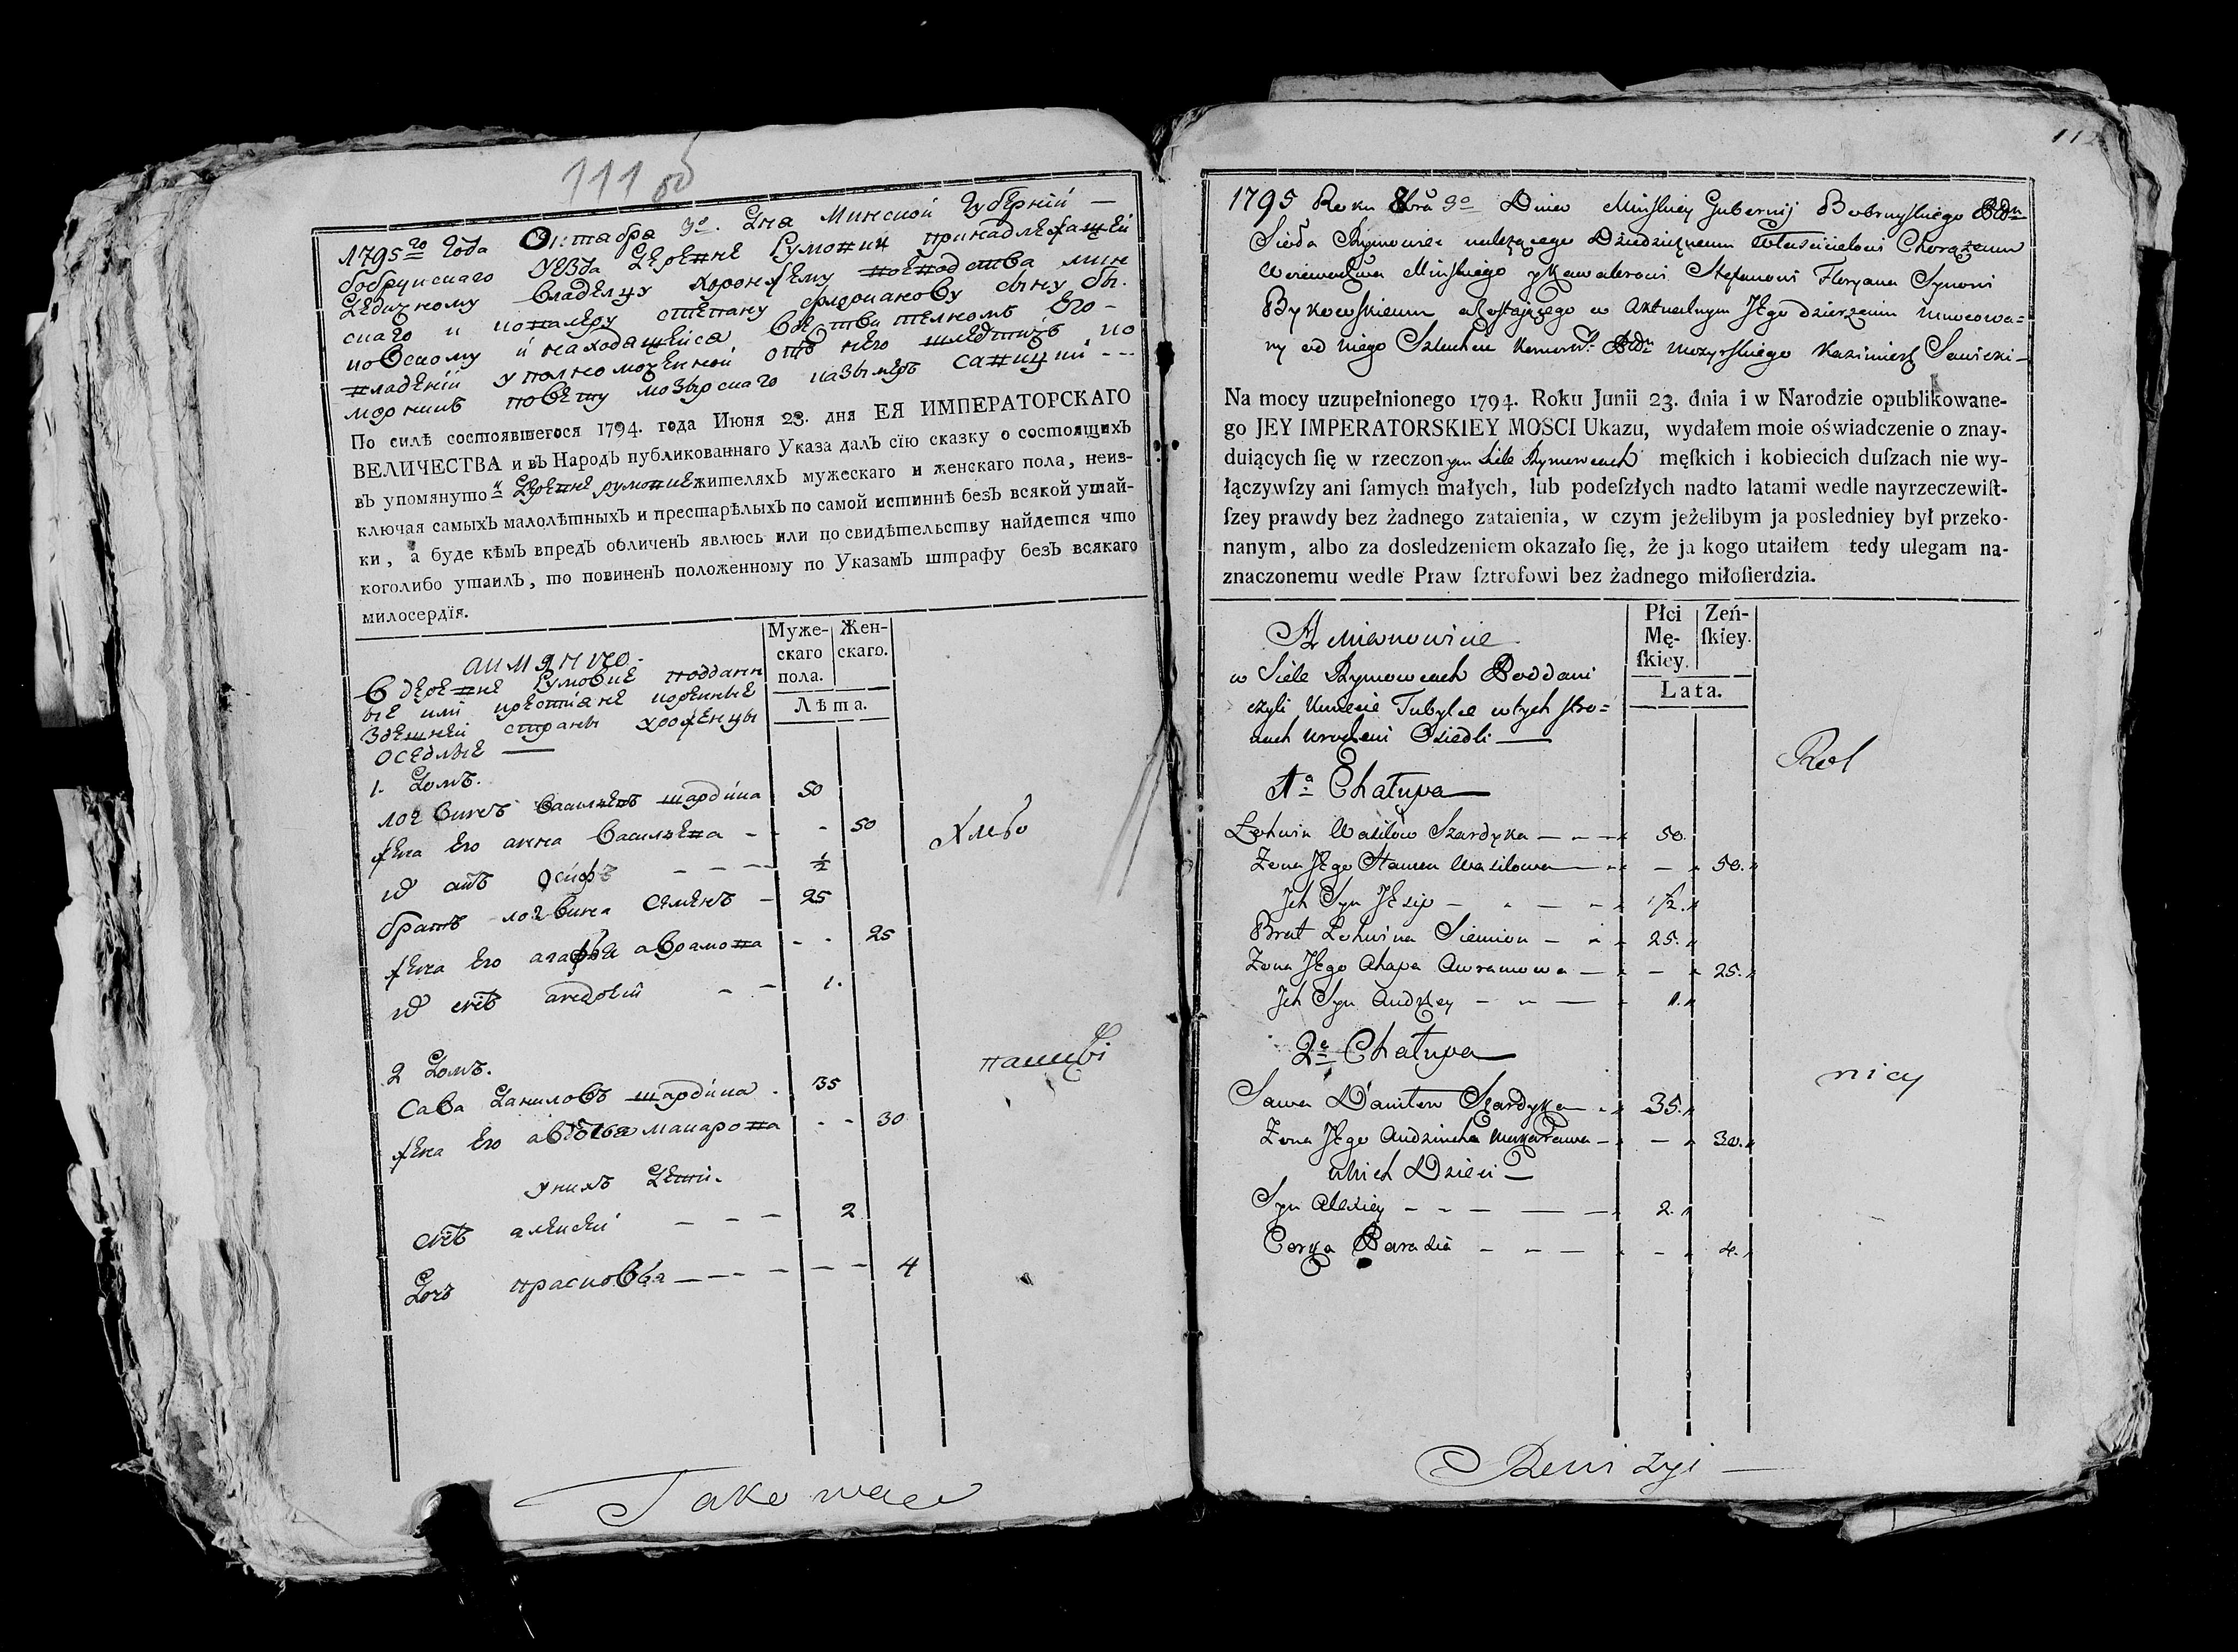 111 об
1795го Года Октабра 9о. Дня Минской Губерніи —
бобруйскаго уезда Деревне Румовки принадлежащей
Дедичному владелцу хоронжему воеводства мин
скаго и кавалеру степану флориянову сыну бы.
ковскому и находящейся, в действителномъ Его —
владеніи уполномоченной отъ него шляхтичъ ко
морникъ повету мозырскаго казимеръ савицкий - - -
По силѣ состоявшегося 1794. года Июня 23. дня ЕЯ ИМПЕРАТОРСКАГО
ВЕЛИЧЕСТВА и въ Народъ публикованнаго Указа далъ сїю сказку о состоящихъ
въ упомянутой Деревне румовке жителяхъ мужескаго и женскаго пола, неиз-
ключая самыхъ малолѣтныхъ и престарѣлыхъ по самой истиннѣ безъ всякой утай-
ки, а буде кѣмъ впредь обличенъ явлюсь или по свидѣтельству найдется что
коголибо утаилъ, то повиненъ положенному по Указамъ штрафу безъ всякаго
милосердїя.
Муже-скаго пола. Жен-скаго.
Лѣта.
а имянно.
в деревне Румовке поддан
ые или крестіяне коренные
здешней страны урожЕнцы
оседлые —
1. Домъ.
логвинъ васильевъ шардыка 50
жена Его анна васильева - - - 50
их сынъ осифъ - - - ½
братъ логвина семенъ - 25
жена Его агафья аврамова - - 25
их снъ андрей - - 1.
2 Домъ.
Сава Даниловъ шардыка . 35
жена Его авдотья макарова - - 30
у нихъ Дети.
снъ алексей - - - 2
Дочь прасковья - - - - - - 4
Хлебо
пашцы
Takowaa
112
1795 Roku 8bra 9o Dnia Minskiey Gubernij Bobruyskiego Pwtu
Sioła Rymowiec należącego Dziedzicznemu Właścicielowi Chorążemu
Woiewodztwa Minskiego y Kawalerowi Stefanowi Floryana Synowi
Bykowskiemu a zostającego w Aktualnym JEgo dzierżeniu umocowa=
ny od niego Szlachcic Komornik Pwtu mozyrskiego Kazimierz Sawicki —
Na mocy uzupełnionego 1794. Roku Junii 23. dnia i w Narodzie opublikowane-
go JEY IMPERATORSKIEY MOSCI Ukazu, wydałem moie oświadczenie o znay-
duiących ſię w rzeczonym Siele Rymowcach męſkich i kobiecich duſzach nie wy-
łączywſzy ani ſamych małych, lub podeſzłych nadto latami wedle nayrzeczewiſt-
ſzey prawdy bez żadnego zataienia, w czym jeżelibym ja posledniey był przeko-
nanym, albo za dosledzeniem okazało ſię, że ja kogo utaiłem tedy ulegam na-
znaczonemu wedle Praw ſztrofowi bez żadnego miłoſierdzia.
Płci Mę-ſkiey. Zeń-ſkiey.
Lata.
A mianowicie
w Siele Rymowcach Poddani
czyli Kmiecie Tubylce w tych stro=
nach urodzeni Osiedli —
1a Chałupa —
Łohwin Wasilów Szardyka — - — 50.
Żona JEgo Hanna Wasilowa — - — 50.
Jch Syn JEsip — - — - 1/2.
Brat Łohwina Siemion — - 25.
Żona JEgo Ahapa Awramowa — - — 25.
Jch Syn Andrzey — - — 1.
2a Chałupa —
Sawa Daniłow Szardyka — - 35.
Żona JEgo Audziucha Makarowa — - — 30.
u nich Dzieci —
Syn Alexiey — - — — — 2.
Corka Parasia — - — - 4.
Rol
nicy
Rewizyi —